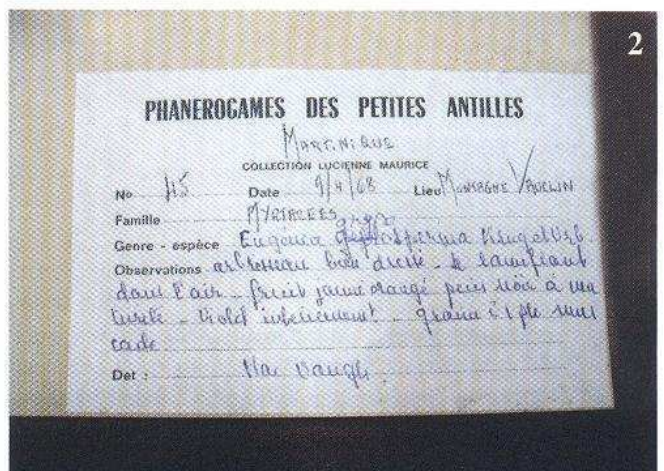 2
PHANEROGAMES DES PETITES ANTILLES
MARTINIQUE
COLLECTION LUCIENNE MAURICE
No 45 Date 9/4/68 Lieu MONTAGNE VAUCLIN
Famille MYRTACEES
Genre - espèce Eugenia Krug et Urb.
Observations arbrisseau bien droit - se ramifiant
dans l'air - fruit jaune orangé puis noir à ma
turité - violet intérieurement - graine
Det :